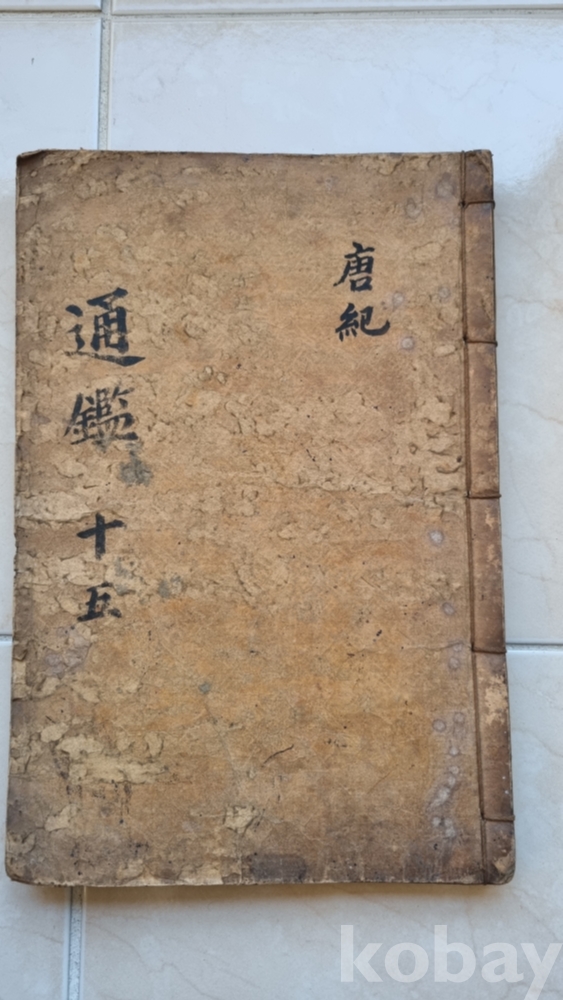 唐紀
通鑑 十五
kobay